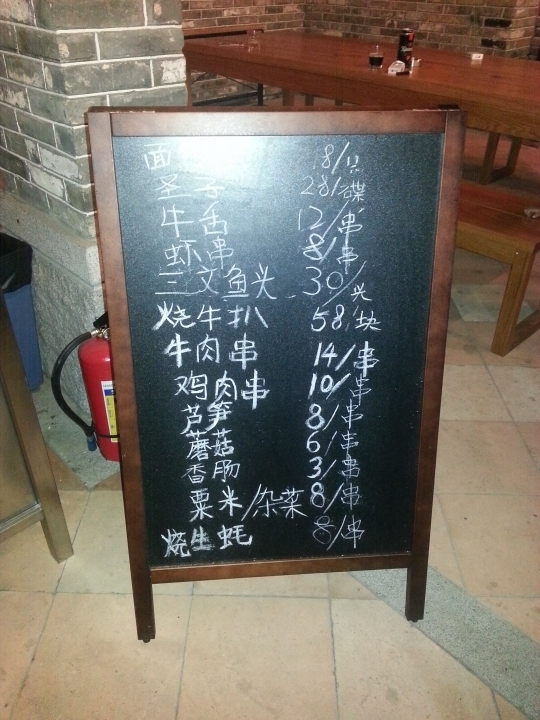 面 18/只
圣子 28/碟
牛舌 12/串
虾串 8/串
三文鱼头 30/头
烧牛扒 58/块
牛肉串 14/串
鸡肉串 10/串
芦笋 8/串
蘑菇 6/串
香肠 3/串
粟米/杂菜 8/串
烧生蚝 8/串